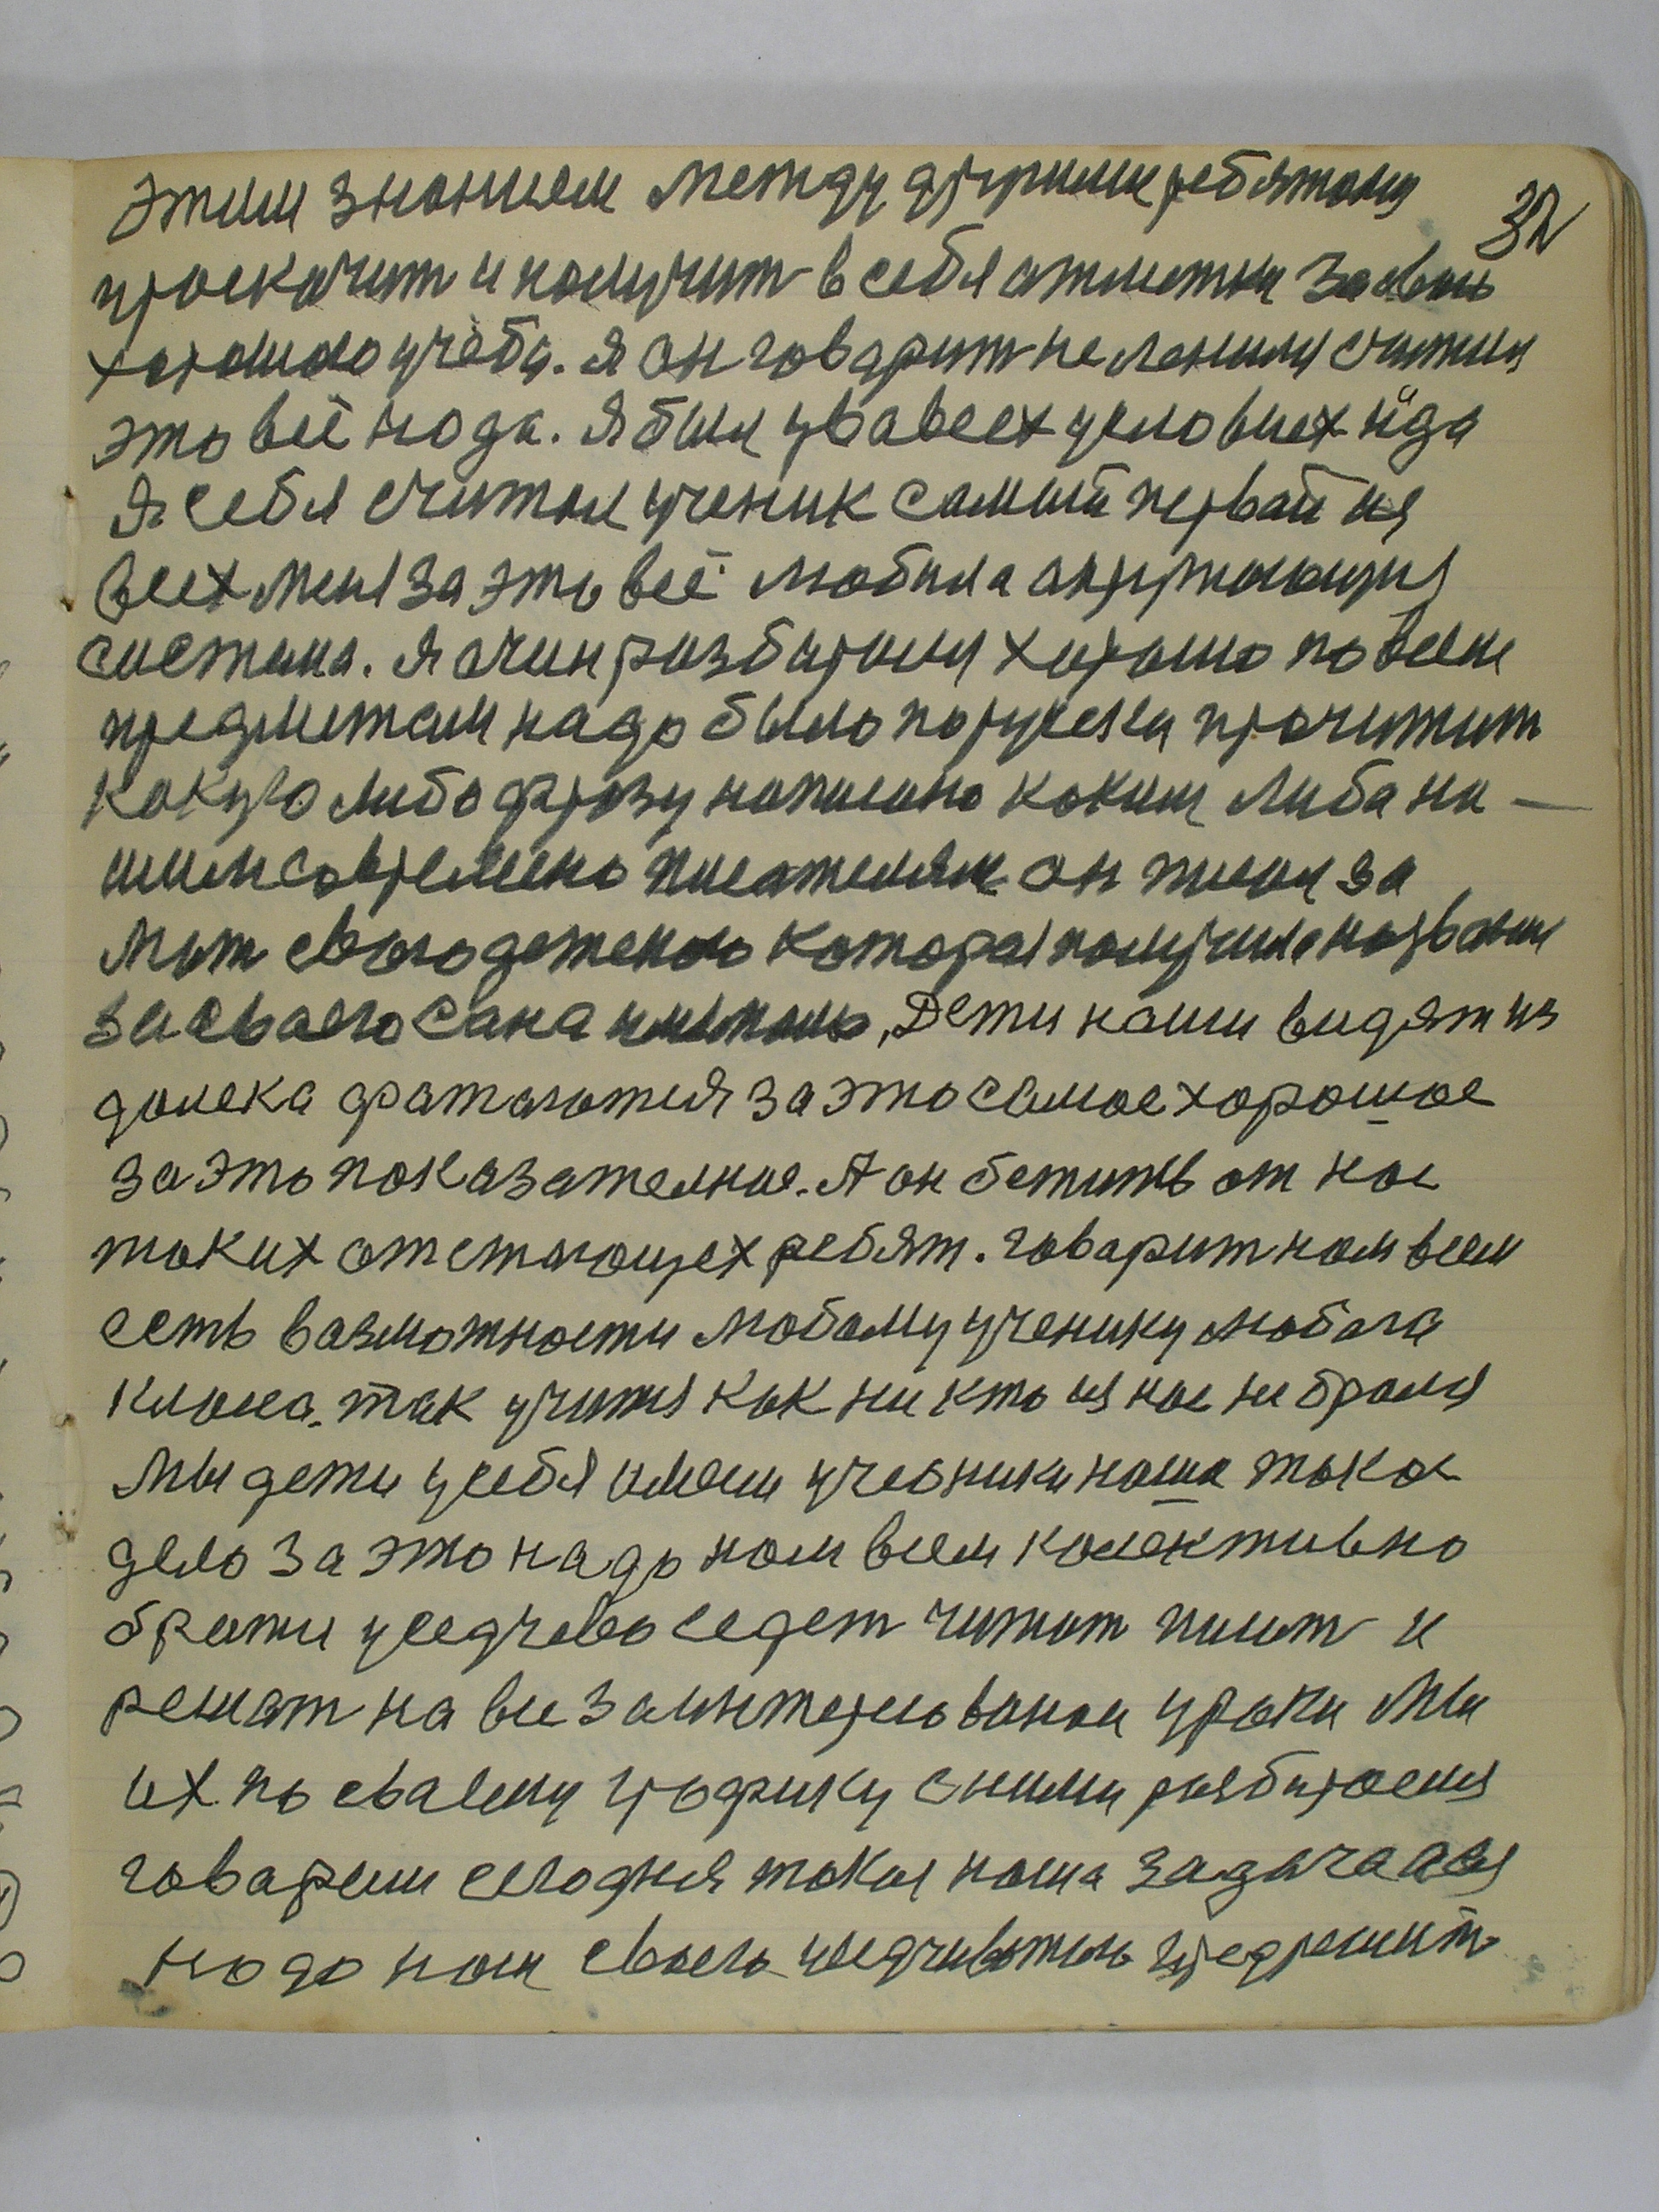 этим знанием между другими ребятами 32
проскачит и получит в себя отметки за свою
хорошою учёбу. Я он говарит не ленился считии
это всё нада. Я был у вавсех условиех йда
Я себя считал ученик самый первай из
всех меня за это всё любила окружающия
система. Я очин разбирался хорошо по всем
предметам надо было порусски прочитит
какую либо фразу написано каким либа на —
шим современо писателям он писал за
мат своюю которая получила названия
за сваего сана. Дети наши видят из
долека фатаютися за это самое хорошое
за это показателное. А он бежить от нас
таких отстающех ребят. говарит нам всем
есть вазможности любому ученику любога
класса. так учится как ни кто из нас не брался
мы дети у себя имеем учебники наша такое
дело за это надо нам всем колективно
брати усердчево седет читат писат и
решат на все заинтересованои уроки мы
их по сваему графику с ними разбираемся
говарем сегодня такая наша задача
надо нам своего предрешить